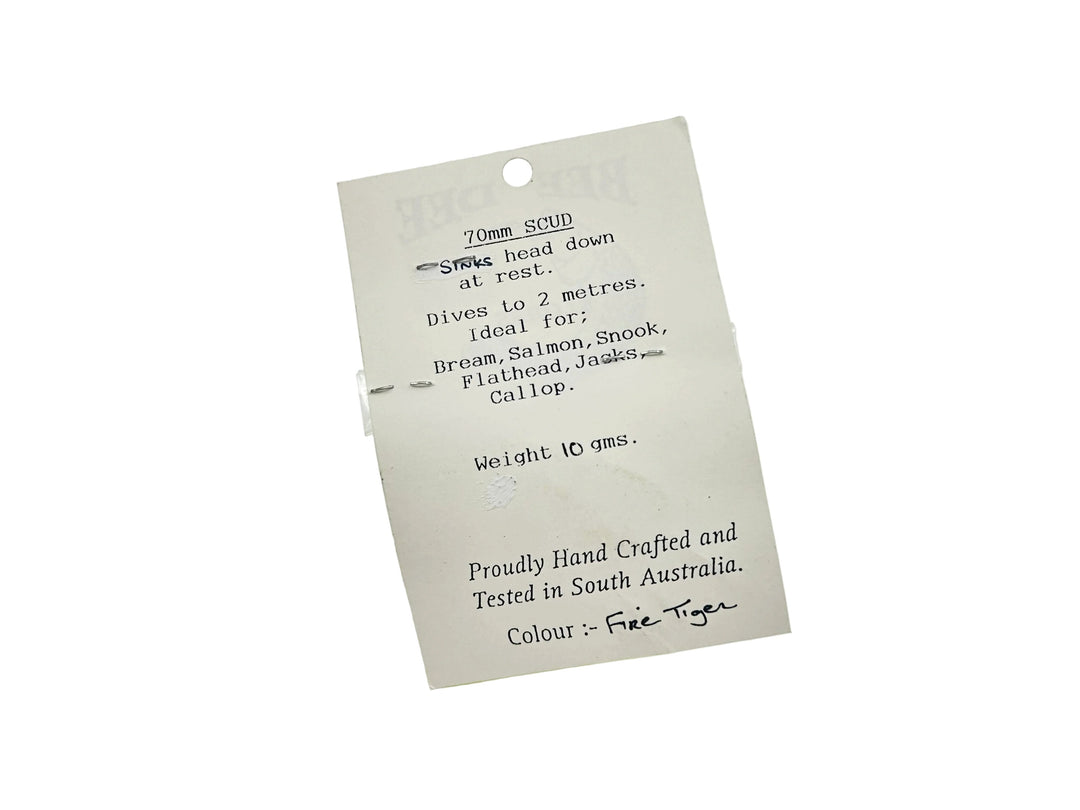 70mm SCUD
SINKS head down
at rest.
Dives to 2 metres.
Ideal for;
Bream,Salmon,Snook,
Flathead,Jacks,
Callop.
Weight 10 gms.
Proudly Hand Crafted and
Tested in South Australia.
Colour :- Fire Tiger